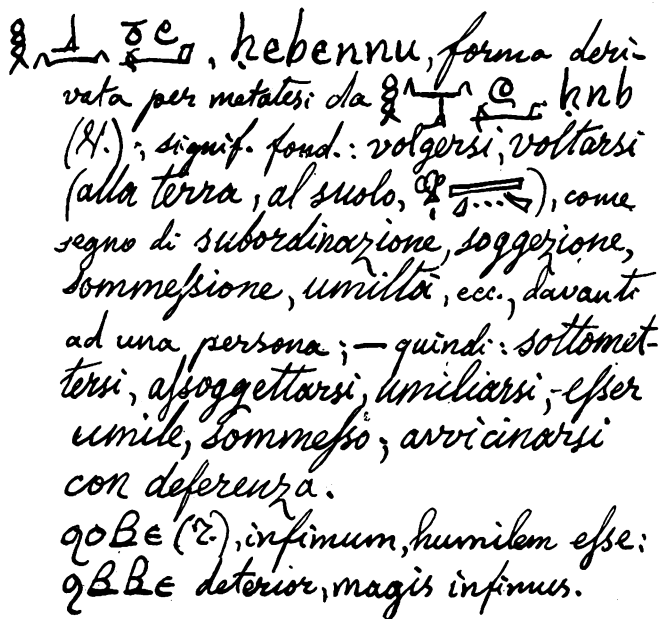 , ḥebennu, forma deri-
vata per metatesi da ḥnb
(V.); signif. fond.: volgersi, voltarsi
(alla terra, al suolo, ), come
segno di subordinazione, soggezione,
sommeſsione, umiltà, ecc., davanti
ad una persona; — quindi: sottomet-
tersi, aſsoggettarsi, umiliarsi, - eſser
umile, sommeſso; avvicinarsi
con deferenza.
ϩⲟⲃⲉ , infimum, humilem eſse:
ϩⲃⲃⲉ deterior, magis infimus.